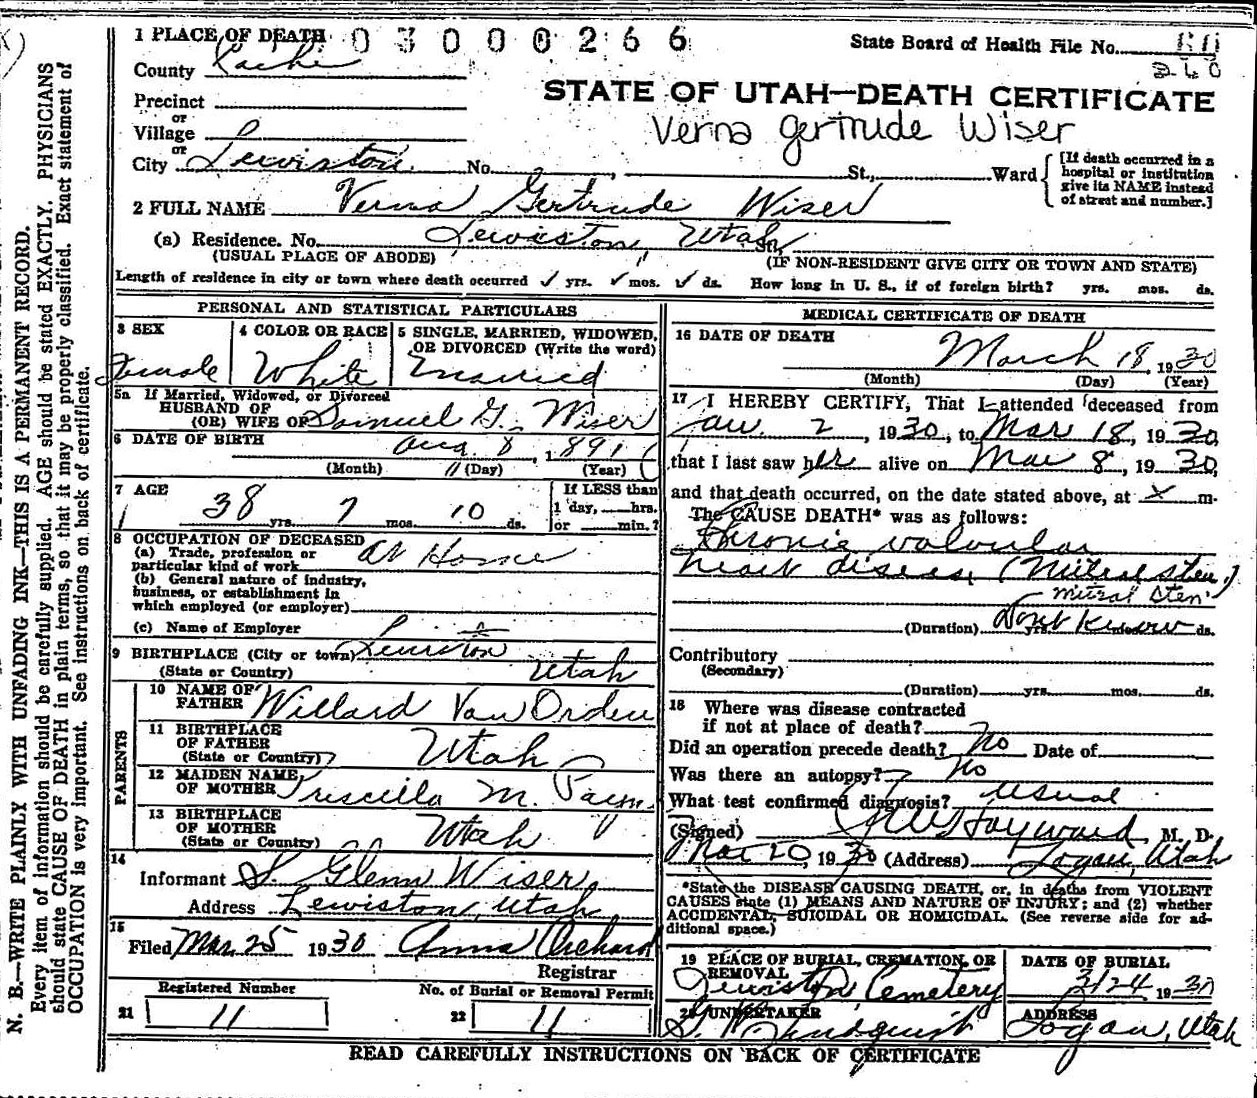 1 PLACE OF DEATH 03000266
State Board of Health File No.
260
County Cache
STATE OF UTAH—DEATH CERTIFICATE
Precinct
or
Village
Verna Gertrude Wiser
or
City Lewiston No. , St., Ward
[If death occurred in a
hospital or institution
give its NAME instead
of street and number.]
2 FULL NAME Verna Gertrude Wiser
(a) Residence. No. Lewiston, Utah St.,
(USUAL PLACE OF ABODE) (IF NON-RESIDENT GIVE CITY OR TOWN AND STATE)
Length of residence in city or town where death occurred ✓ yrs. ✓ mos. ✓ ds. How long in U. S., if of foreign birth? yrs. mos. ds.
PERSONAL AND STATISTICAL PARTICULARS
3 SEX Female
4 COLOR OR RACE White
5 SINGLE, MARRIED, WIDOWED,
OR DIVORCED (Write the word)
Married
5a If Married, Widowed, or Divorced
HUSBAND OF
(OR) WIFE OF Samuel G. Wiser
6 DATE OF BIRTH Aug. 8, 1891
(Month) (Day) (Year)
7 AGE 38 yrs. 7 mos. 10 ds.
If LESS than
1 day, hrs.
or min.?
8 OCCUPATION OF DECEASED
(a) Trade, profession or
particular kind of work At Home
(b) General nature of industry,
business, or establishment in
which employed (or employer)
(c) Name of Employer
9 BIRTHPLACE (City or town) Lewiston
(State or Country) Utah
PARENTS
10 NAME OF
FATHER Willard Van Orden
11 BIRTHPLACE
OF FATHER
(State or Country) Utah
12 MAIDEN NAME
OF MOTHER Priscilla M.
13 BIRTHPLACE
OF MOTHER
(State or Country) Utah
14
Informant S. Glenn Wiser
Address Lewiston, Utah
15
Filed Mar. 25 1930 Anna Orchard
Registrar
Registered Number
21 11
No. of Burial or Removal Permit
22 11
MEDICAL CERTIFICATE OF DEATH
16 DATE OF DEATH
March 18, 1930
(Month) (Day) (Year)
17 I HEREBY CERTIFY, That I attended deceased from
Jan. 2, 1930, to Mar 18, 1930,
that I last saw her alive on Mar 8, 1930,
and that death occurred, on the date stated above, at X m.
The CAUSE DEATH* was as follows:
Chronic valvular
heart disease (Mitral Sten.)
mitral Sten.
(Duration) Dont Know yrs. mos. ds.
Contributory
(Secondary)
(Duration) yrs. mos. ds.
18 Where was disease contracted
if not at place of death?
Did an operation precede death? No Date of
Was there an autopsy? No
What test confirmed diagnosis? Usual
(Signed) Hayward M. D.
Mar 20, 1930 (Address) Logan, Utah
*State the DISEASE CAUSING DEATH, or, in deaths from VIOLENT
CAUSES state (1) MEANS AND NATURE OF INJURY; and (2) whether
ACCIDENTAL, SUICIDAL OR HOMICIDAL. (See reverse side for ad-
ditional space.)
19 PLACE OF BURIAL, CREMATION, OR
REMOVAL
Lewiston Cemetery
DATE OF BURIAL
3/24 1930
20 UNDERTAKER
Lindquist
ADDRESS
Logan, Utah
READ CAREFULLY INSTRUCTIONS ON BACK OF CERTIFICATE
N. B.—WRITE PLAINLY WITH UNFADING INK—THIS IS A PERMANENT RECORD.
Every item of information should be carefully supplied. AGE should be stated EXACTLY. PHYSICIANS
should state CAUSE OF DEATH in plain terms, so that it may be properly classified. Exact statement of
OCCUPATION is very important. See instructions on back of certificate.